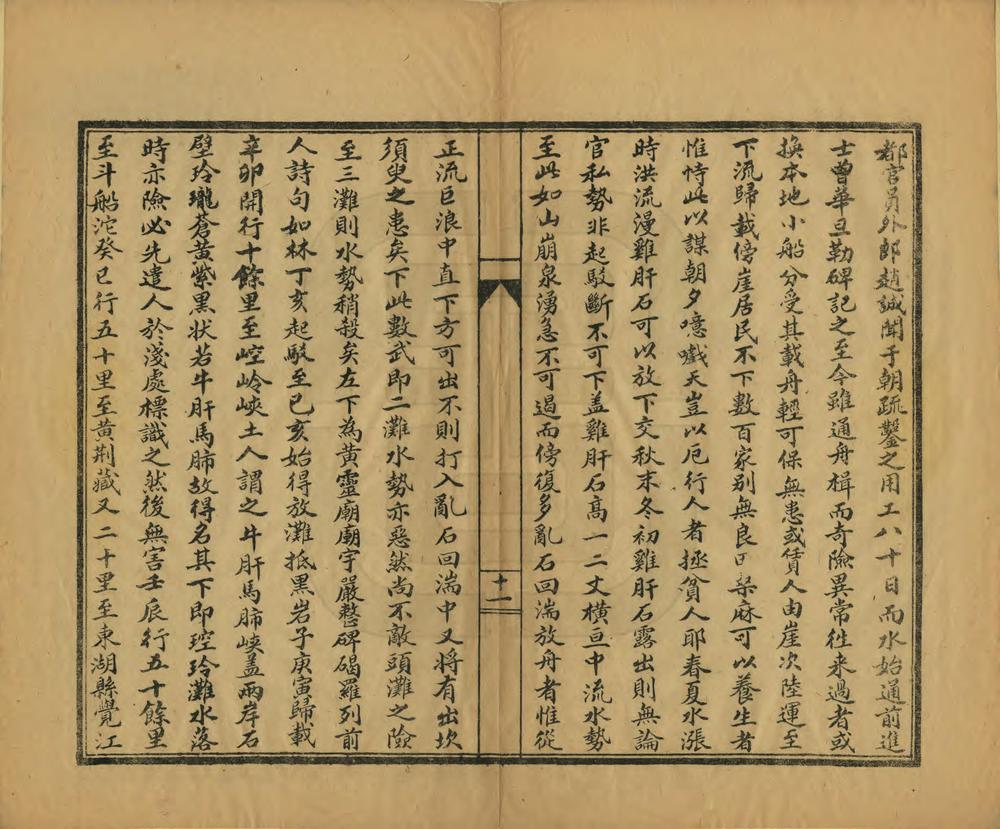 都官員外郎趙誠聞于朝疏鑿之用工八十日而水始通前進
士曾華旦勒碑記之至今雖通舟楫而奇險異常徃来過者或
換本地小船分受其載舟輕可保無患或賃人由崖次陸運至
下流歸載傍崖居民不下數百家别無良田桼麻可以養生者
惟恃此以謀朝夕噫嚱天豈以厄行人者拯貧人耶春夏水漲
時洪流漫雞肝石可以放下交秋末冬初雞肝石露出則無論
官私勢非起駁斷不可下盖雞肝石髙一二丈横亘中流水勢
至此如山崩泉湧急不可遏而傍復多亂石回湍放舟者惟從
十一
正流巨浪中直下方可出不則打入亂石回湍中又將有出坎
須臾之患矣下此數武即二灘水勢亦惡然尚不敵頭灘之險
至三灘則水勢稍殺矣左下為黄靈廟廟宇嚴整碑碣羅列前
人詩句如林丁亥起駁至己亥始得放灘抵黒岩子庚寅歸載
辛卯開行十餘里至崆岭峽土人謂之牛肝馬肺峽盖兩岸石
壁玲瓏蒼黄紫黒状若牛肝馬肺故得名其下即崆玲灘水落
時亦險必先遣人於淺處標識之然後無害壬辰行五十餘里
至斗船沱癸巳行五十里至黄荆藏又二十里至東湖縣覺江